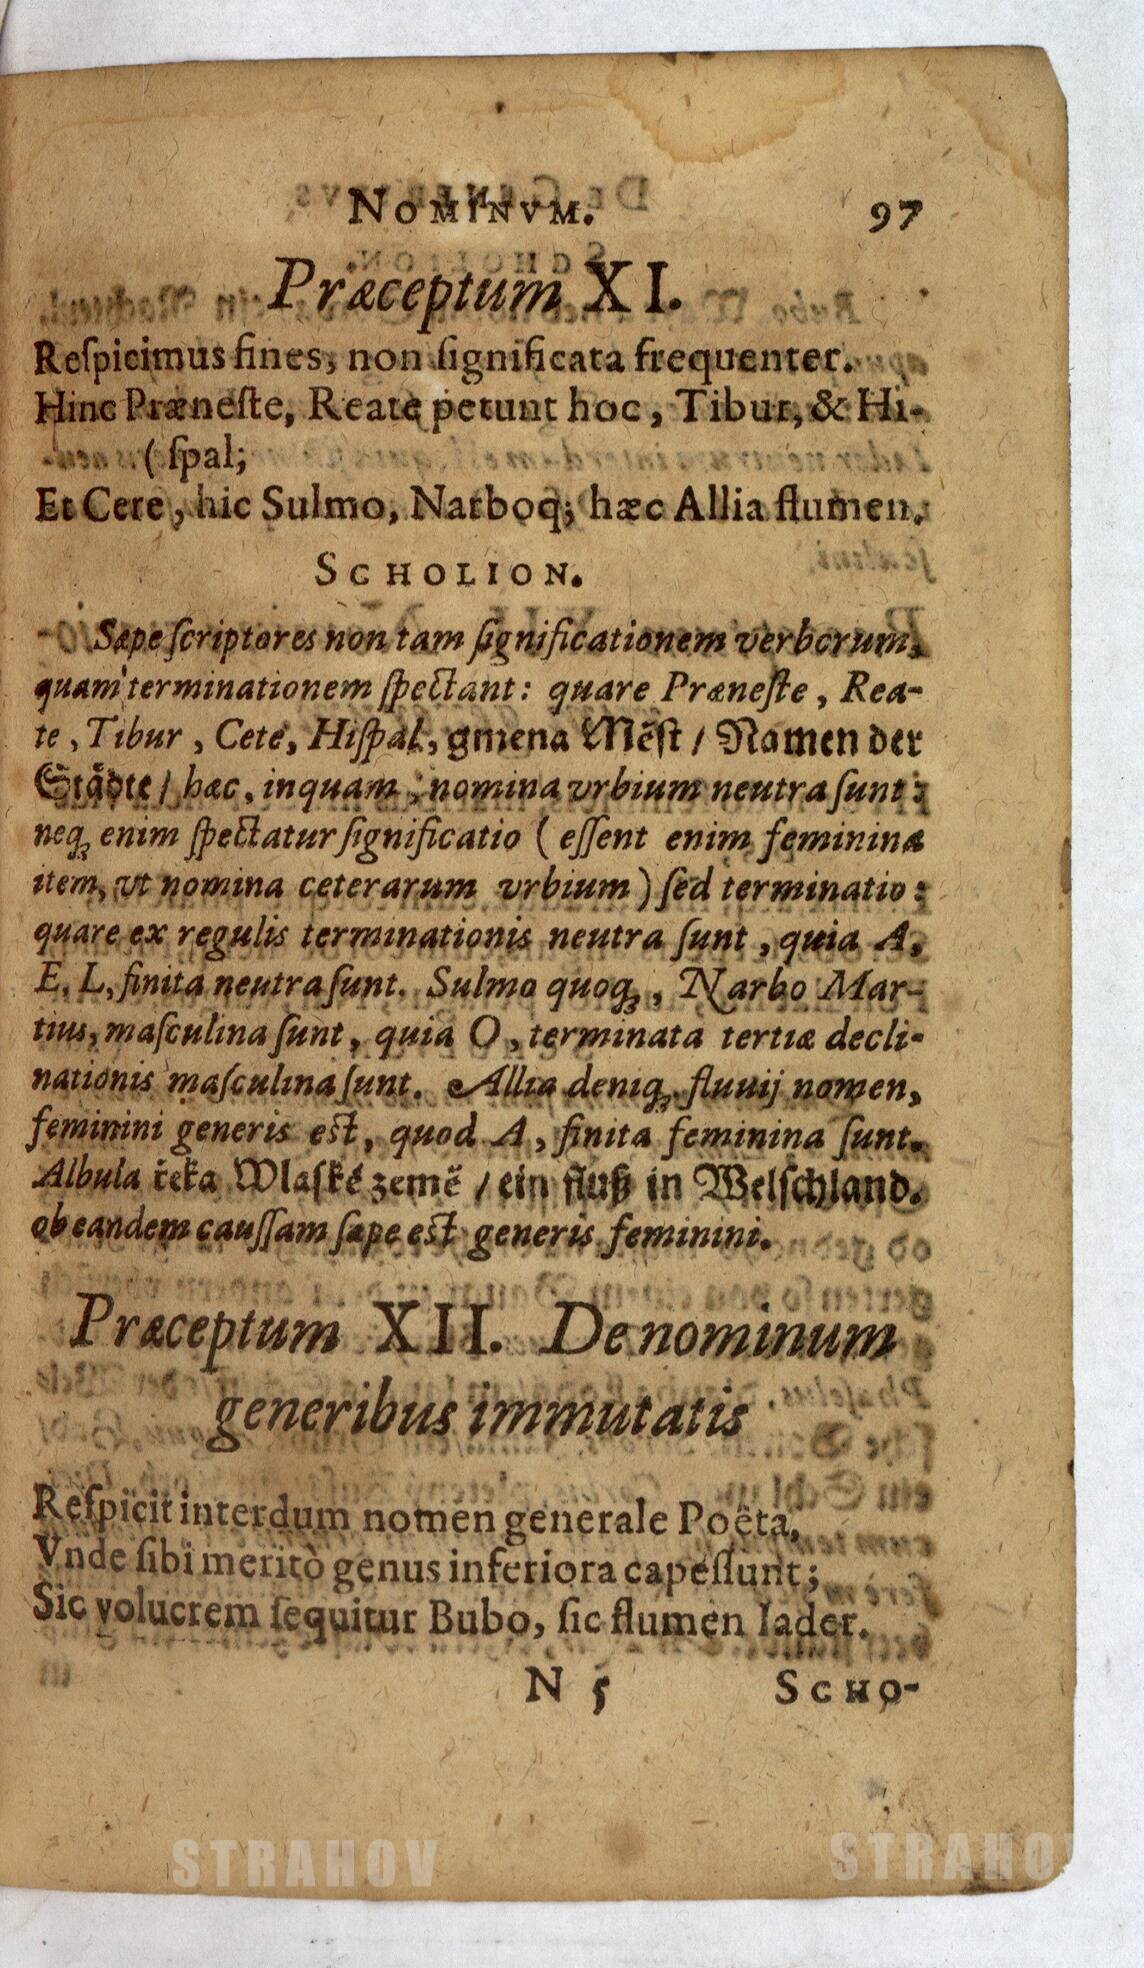 NOMINVM. 97
Præceptum XI.
Reſpicimus fines, non ſignificata frequenter.
Hinc Præneſte, Reate petunt hoc, Tibur, & Hi-
(ſpal;
Et Cere, hic Sulmo, Narboq; hæc Allia flumen.
SCHOLION.
Sæpe ſcriptores non tam ſignificationem verborum,
quam terminationem ſpectant: quare Præneſte, Rea-
te, Tibur, Cete, Hiſpal, gmena Měſt / Namen der
Städte / hæc, inquam, nomina vrbium neutra ſunt:
neq; enim ſpectatur ſignificatio (eſſent enim feminina
item, vt nomina ceterarum vrbium) ſed terminatio:
quare ex regulis terminationis neutra ſunt, quia A,
E, L, finita neutra ſunt. Sulmo quoq;, Narbo Mar-
tius, maſculina ſunt, quia O, terminata tertiæ decli-
nationis maſculina ſunt. Allia deniq; fluuij nomen,
feminini generis eſt, quod A, finita feminina ſunt.
Albula řeka Wlaſké země / ein fluß in Welſchland.
ob eandem cauſſam ſæpe eſt generis feminini.
Præceptum XII. De nominum
generibus immutatis
Reſpicit interdum nomen generale Poêta,
Vnde ſibi meritò genus inferiora capeſſunt;
Sic volucrem ſequitur Bubo, ſic flumen Iader.
N 5 SCHO-
STRAHOV
STRAHOV